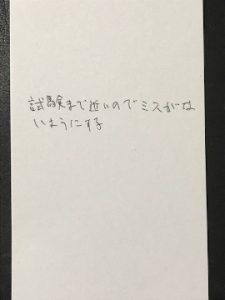 試験まで近いのでミスがな
いようにする